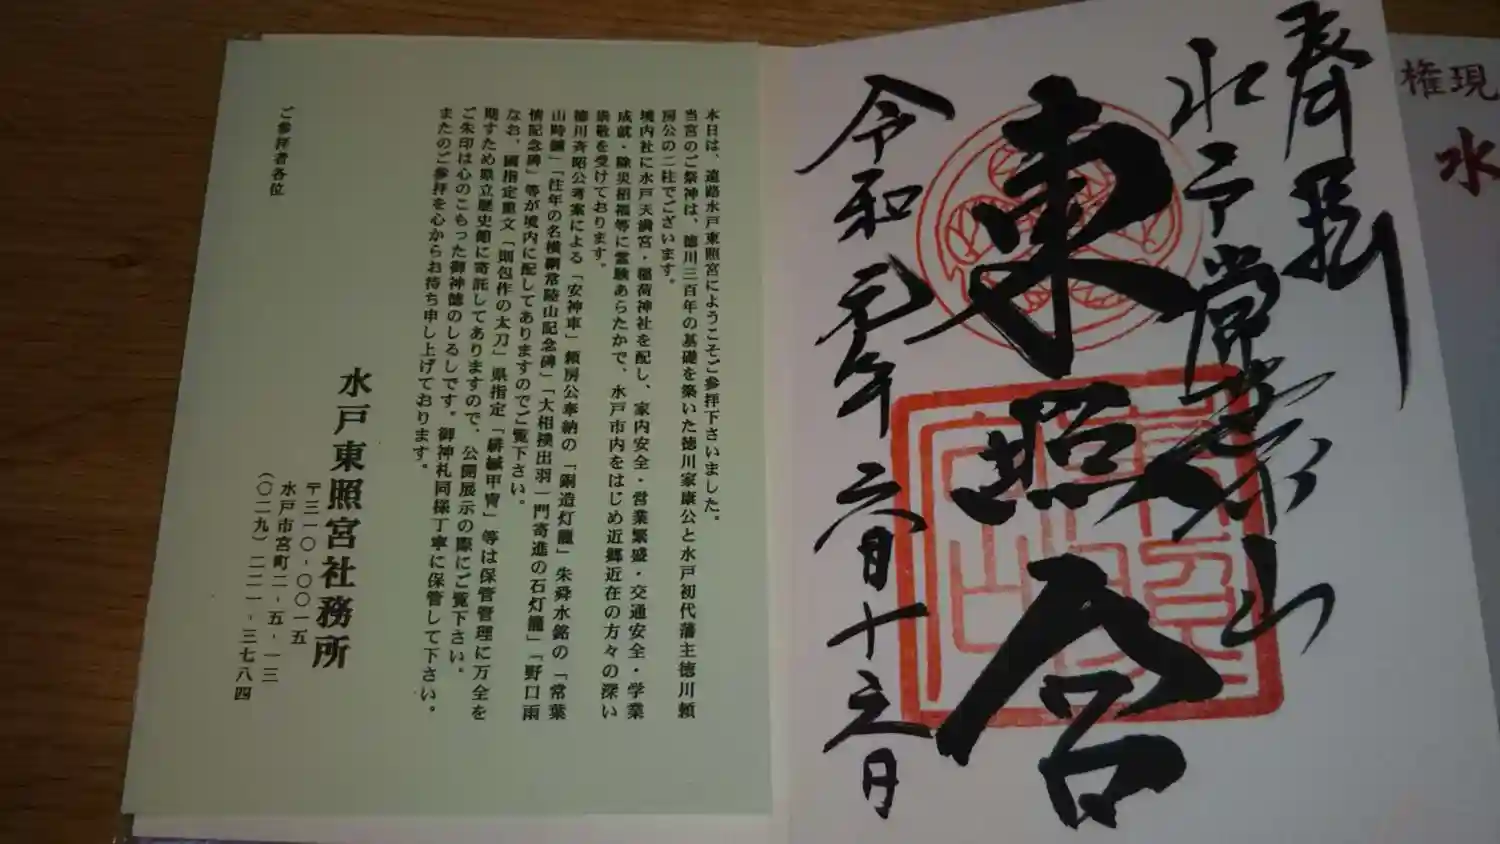 奉拝
水戸常葉山
東照宮
令和元年六月十五日
権現
水
本日は、遠路水戸東照宮にようこそご参拝下さいました。
当宮のご祭神は、徳川三百年の基礎を築いた徳川家康公と水戸初代藩主徳川頼
房公の二柱でございます。
境内社に水戸天満宮・稲荷神社を配し、家内安全・営業繁盛・交通安全・学業
成就・除災招福等に霊験あらたかで、水戸市内をはじめ近郷近在の方々の深い
崇敬を受けております。
徳川斉昭公考案による「安神車」頼房公奉納の「銅造灯籠」朱舜水銘の「常葉
山時鐘」「往年の名横綱常陸山記念碑」「大相撲出羽一門寄進の石灯籠」「野口雨
情記念碑」等が境内に配してありますのでご覧下さい。
なお、国指定重文「則包作の太刀」県指定「緋縅甲冑」等は保管管理に万全を
期すため県立歴史館に寄託してありますので、公開展示の際にご覧下さい。
ご朱印は心のこもった御神徳のしるしです。御神札同様丁寧に保管して下さい。
またのご参拝を心からお待ち申し上げております。
水戸東照宮社務所
〒三一〇-〇〇一五
水戸市宮町二-五-一三
(〇二九)二二一-三七八四
ご参拝者各位